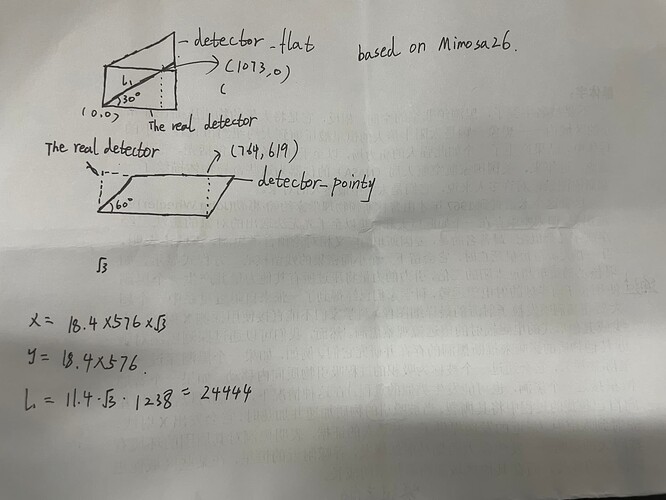 detector_flat
based on Mimosa26.
(1073,0)
(
L₁
30°
(0,0)
The real detector
The real detector
(764,619)
detector_pointy
60°
√3
x = 18.4×576×√3
y = 18.4×576.
L₁ = 11.4·√3·1238 = 24444